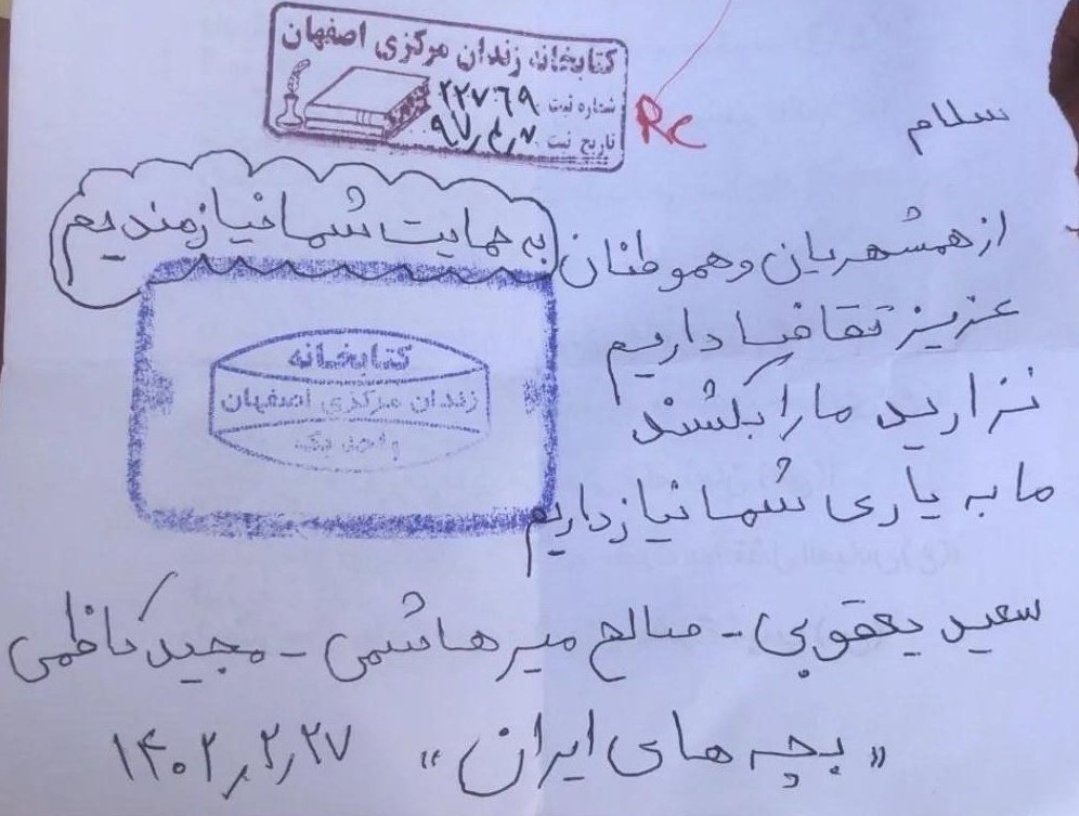 کتابخانه زندان مرکزی اصفهان
شماره ثبت ۲۲۷۶۹
تاریخ ثبت
Rc
سلام
از همشهریان و هموطنان
به حمایت شما نیازمندیم
عزیز تقاضا داریم
نزارید ما را بکشند
ما به یاری شما نیاز داریم
کتابخانه
زندان مرکزی اصفهان
واحد یک
سعید یعقوبی - صالح میرهاشمی - مجید کاظمی
«بچه های ایران» ۱۴۰۲٫۲٫۲۷